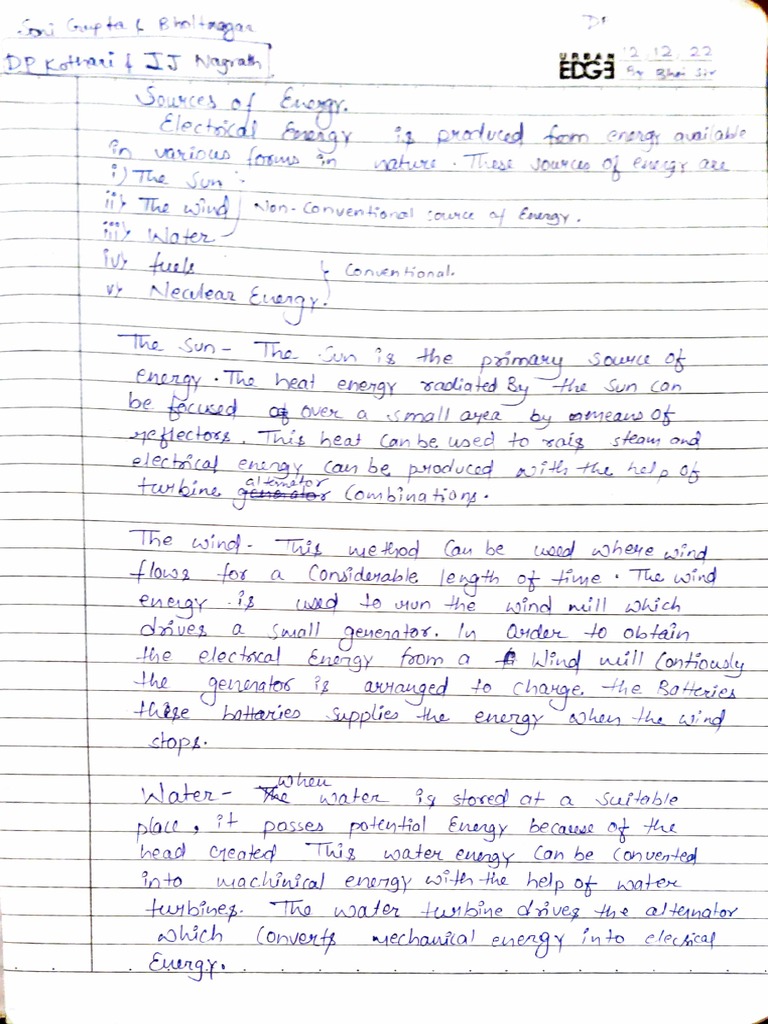 Soni Gupta & Bhaltnagar
DP Kothari & IJ Nagrath
URBAN EDGE
12.12.22
By Bhai Sir
Sources of Energy.
Electrical Energy is produced from energy available
in various forms in nature. These sources of energy are
i) The Sun
ii) The wind Non-Conventional source of Energy.
iii) Water
iv) fuels Conventional.
v) Neculear Energy.
The Sun- The Sun is the primary source of
energy. The heat energy radiated By the Sun can
be focused over a small area by means of
reflectors. This heat can be used to rais steam and
electrical energy can be produced with the help of
turbine alternator Combinations.
The wind- This method Can be used where wind
flows for a Considerable length of time. The wind
energy is used to run the wind mill which
drives a small generator. In Order to obtain
the electrical Energy from a Wind mill Contiously
the generator is arranged to Charge the Batteries
these battaries supplies the energy when the wind
stops.
Water- when water is stored at a suitable
place, it posses potential Energy because of the
head created This water energy Can be Converted
into machinical energy with the help of water
turbines. The water turbine drives the alternator
which Converts mechanical energy into elecsical
Energy.